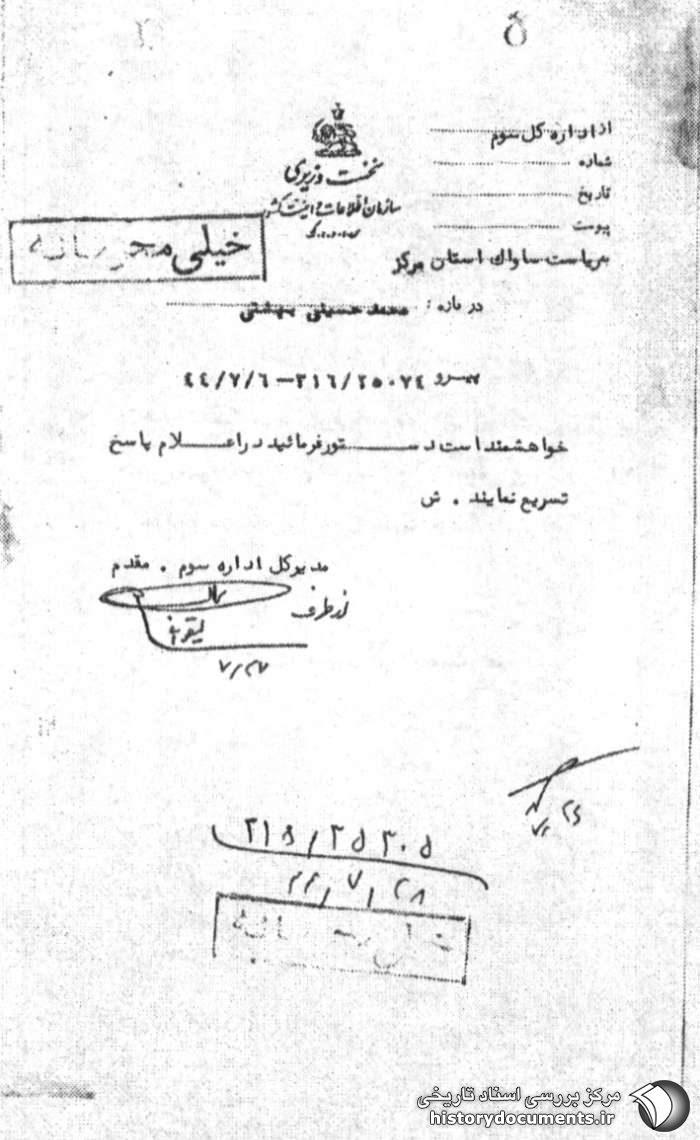 ۵
از اداره کل سوم
شماره
تاریخ
پیوست
نخست وزیری
سازمان اطلاعات و امنیت کشور
س.ا.و.ا.ک
خیلی محرمانه
بریاست ساواك استان مرکز
درباره : محمد حسینی بهشتی
پیرو ۳۱۶/۲۵۰۷۴–۴۴/۷/۶
خواهشمند است دستور فرمائید در اعلام پاسخ
تسریع نمایند . ش
مدیرکل اداره سوم . مقدم
از طرف
۷/۲۷
۲۵۳۰۵/
۲۸/۷/۴۴
خیلی محرمانه
مرکز بررسی اسناد تاریخی
historydocuments.ir